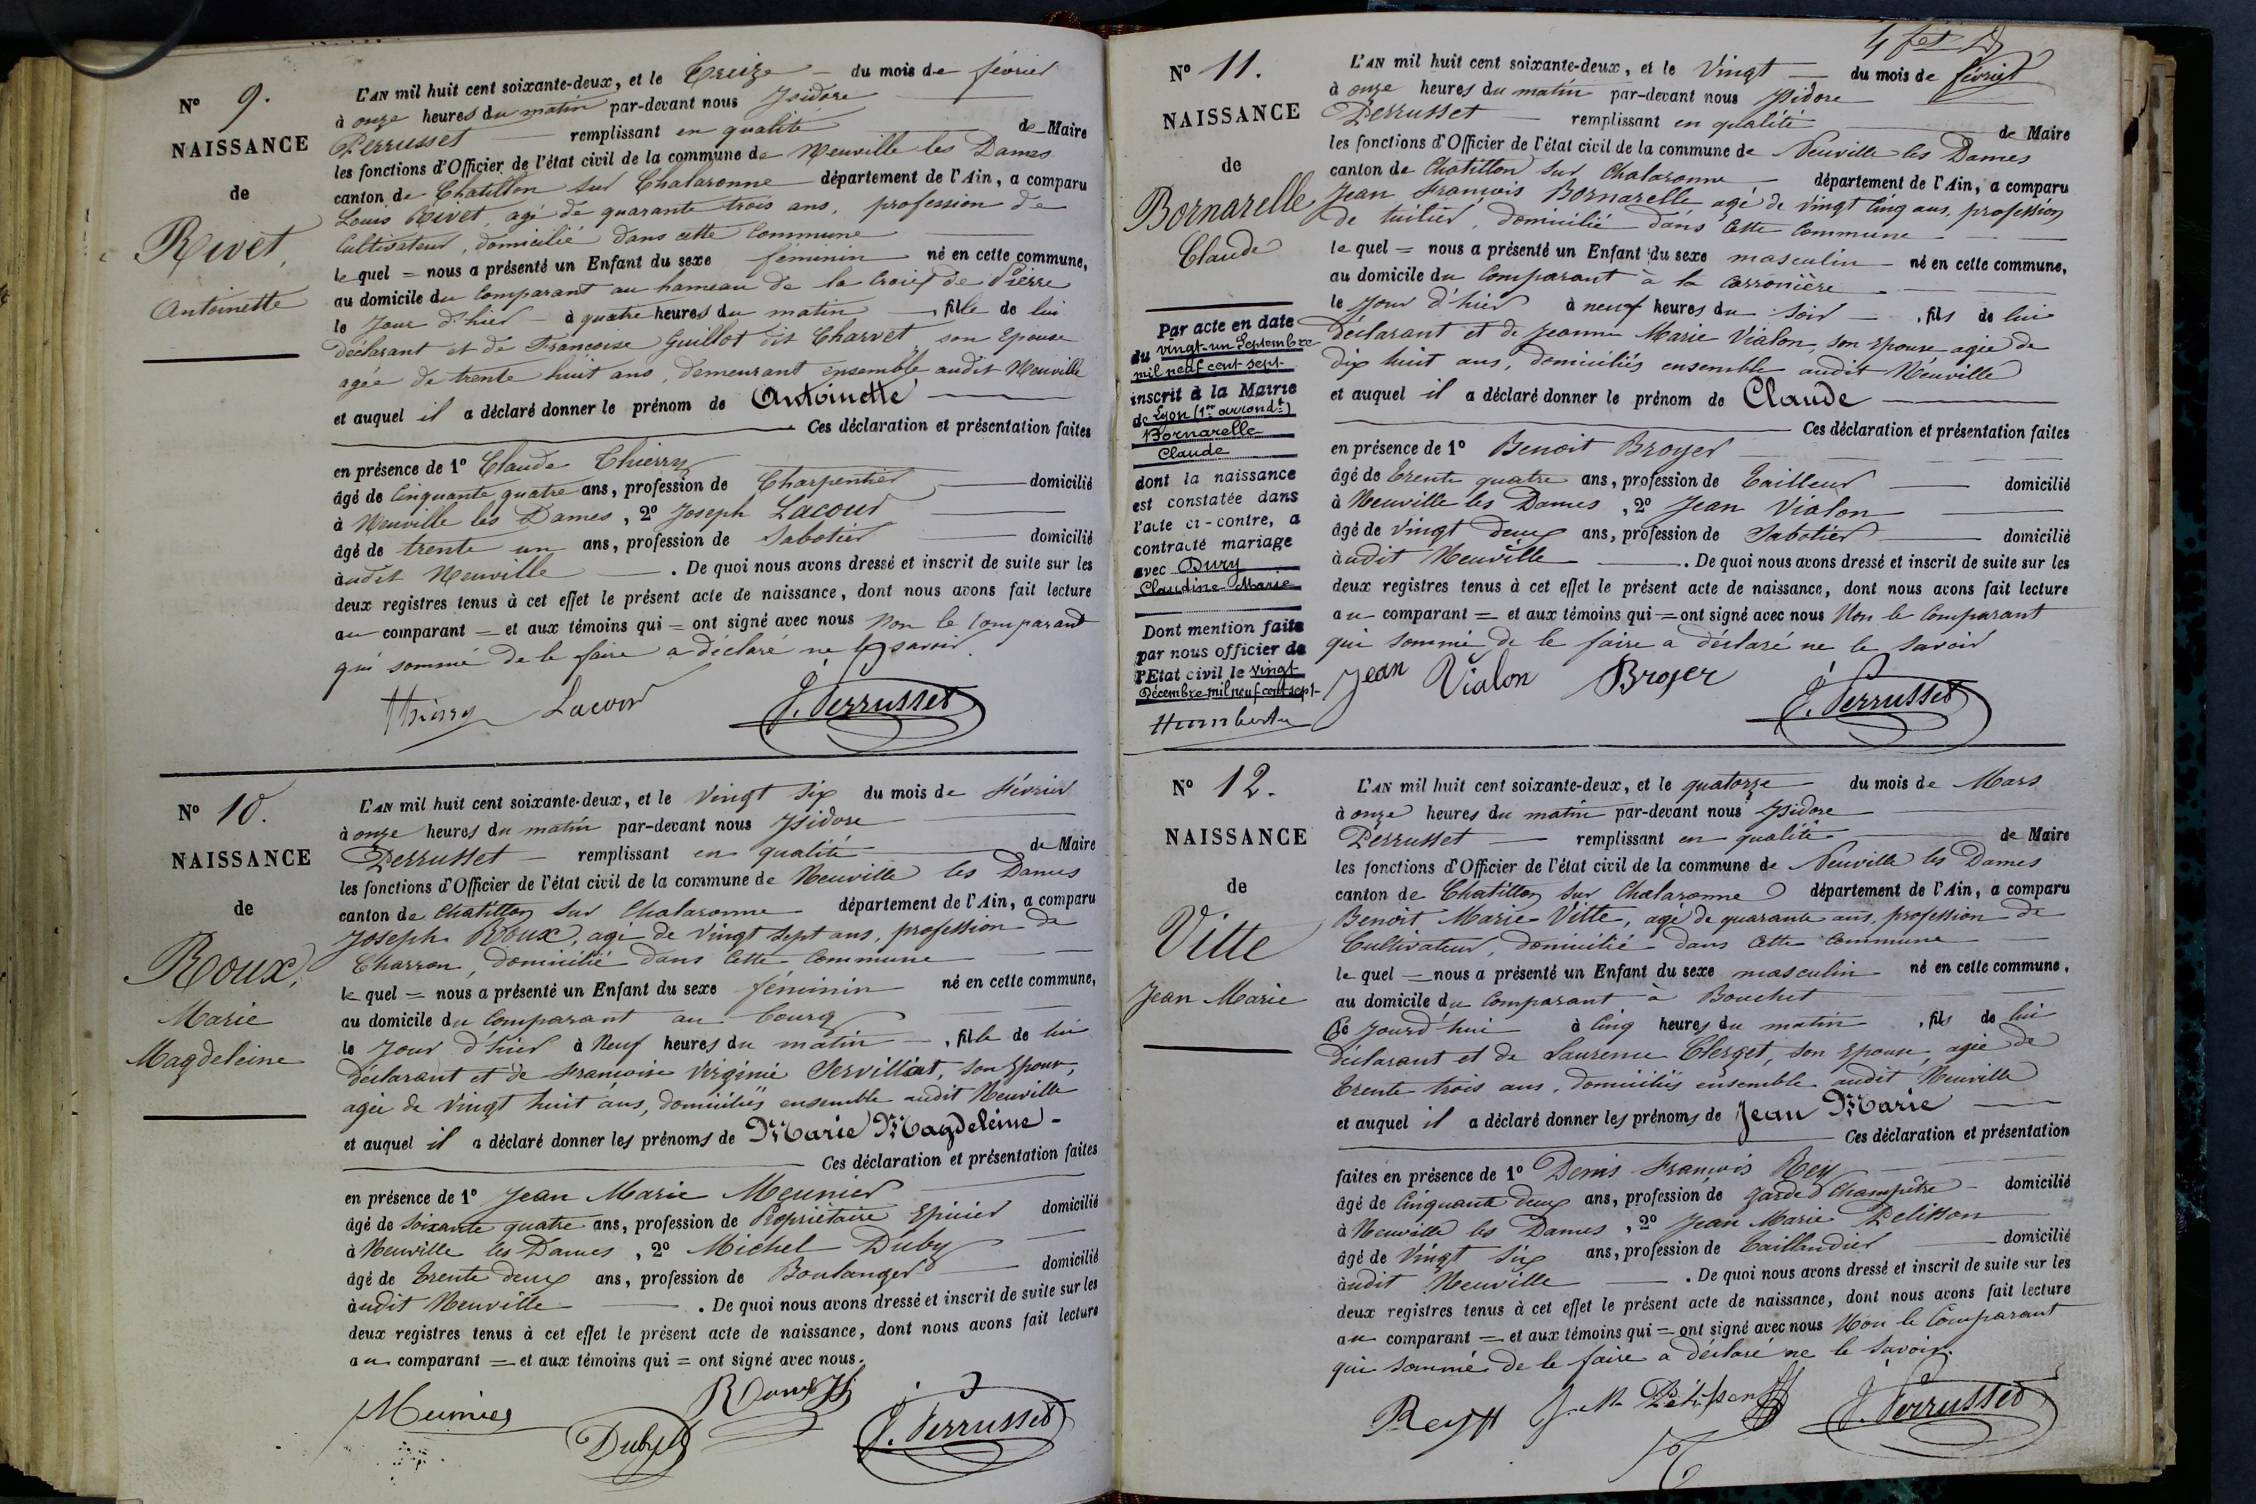 N° 9.
NAISSANCE
de
Rivet,
Antoinette
L'AN mil huit cent soixante-deux, et le Treize du mois de février
à onze heures du matin par-devant nous Isidore
Perrusset remplissant en qualité de Maire
les fonctions d'Officier de l'état civil de la commune de Neuville les Dames
canton de Chatillon sur Chalaronne département de l'Ain, a comparu
Louis Rivet, agé de quarante trois ans, profession de
Cultivateur, domicilié dans cette Commune
lequel = nous a présenté un Enfant du sexe féminin né en cette commune,
au domicile du Comparant au hameau de la Croix de Pierre
le Jour d'hier à quatre heures du matin, fille de lui
déclarant et de Françoise Guillot dit Charvet, son Epouse
agée de trente huit ans, demeurant ensemble audit Neuville
et auquel il a déclaré donner le prénom de Antoinette
Ces déclaration et présentation faites
en présence de 1° Claude Thierry
âgé de Cinquante quatre ans, profession de Charpentier domicilié
à Neuville les Dames, 2° Joseph Lacour
âgé de trente un ans, profession de Sabotier domicilié
audit Neuville. De quoi nous avons dressé et inscrit de suite sur les
deux registres tenus à cet effet le présent acte de naissance, dont nous avons fait lecture
au comparant = et aux témoins qui = ont signé avec nous Non le Comparant
qui sommé de le faire a déclaré ne le savoir.
Thierry Lacour J. Perrusset
N° 10.
NAISSANCE
de
Roux,
Marie
Magdeleine
L'AN mil huit cent soixante-deux, et le Vingt Six du mois de Février
à onze heures du matin par-devant nous Isidore
Perrusset remplissant en qualité de Maire
les fonctions d'Officier de l'état civil de la commune de Neuville les Dames
canton de Chatillon sur Chalaronne département de l'Ain, a comparu
Joseph Roux, agé de Vingt sept ans, profession de
Charron, domicilié dans cette Commune
lequel = nous a présenté un Enfant du sexe féminin né en cette commune,
au domicile du Comparant au bourg
le Jour d'hier à Neuf heures du matin, fille de lui
déclarant et de Françoise Virginie Servillat, son Epouse,
agée de Vingt huit ans, domiciliés ensemble audit Neuville
et auquel il a déclaré donner les prénoms de Marie Magdeleine -
Ces déclaration et présentation faites
en présence de 1° Jean Marie Meunier
âgé de Soixante quatre ans, profession de Propriétaire Epicier domicilié
à Neuville les Dames, 2° Michel Duby
âgé de trente deux ans, profession de Boulanger domicilié
audit Neuville. De quoi nous avons dressé et inscrit de suite sur les
deux registres tenus à cet effet le présent acte de naissance, dont nous avons fait lecture
au comparant = et aux témoins qui = ont signé avec nous.
Meunier Duby Roux J. Perrusset
N° 11.
NAISSANCE
de
Bornarelle
Claude
Par acte en date
du vingt-un Septembre
mil neuf cent sept
inscrit à la Mairie
de Lyon (1er arrondt)
Bornarelle
Claude
dont la naissance
est constatée dans
l'acte ci-contre, a
contracté mariage
avec Dury
Claudine Marie
Dont mention faite
par nous officier de
l'Etat civil le vingt
Décembre mil neuf cent sept
L'AN mil huit cent soixante-deux, et le Vingt du mois de février
à onze heures du matin par-devant nous Isidore
Perrusset remplissant en qualité de Maire
les fonctions d'Officier de l'état civil de la commune de Neuville les Dames
canton de Chatillon sur Chalaronne département de l'Ain, a comparu
Jean François Bornarelle agé de Vingt Cinq ans, profession
de tuilier, domicilié dans Cette Commune
lequel = nous a présenté un Enfant du sexe masculin né en cette commune,
au domicile du Comparant à la Carronière
le Jour d'hier à neuf heures du Soir, fils de lui
déclarant et de Jeanne Marie Vialon, son Epouse agée de
Dix huit ans, domiciliés ensemble audit Neuville
et auquel il a déclaré donner le prénom de Claude
Ces déclaration et présentation faites
en présence de 1° Benoit Broyer
âgé de trente quatre ans, profession de Tailleur domicilié
à Neuville les Dames, 2° Jean Vialon
âgé de Vingt Deux ans, profession de Sabotier domicilié
audit Neuville. De quoi nous avons dressé et inscrit de suite sur les
deux registres tenus à cet effet le présent acte de naissance, dont nous avons fait lecture
au comparant = et aux témoins qui = ont signé avec nous Non le Comparant
qui sommé de le faire a déclaré ne le savoir
Jean Vialon Broyer J. Perrusset
N° 12.
NAISSANCE
de
Vitte
Jean Marie
L'AN mil huit cent soixante-deux, et le quatorze du mois de Mars
à onze heures du matin par-devant nous Isidore
Perrusset remplissant en qualité de Maire
les fonctions d'Officier de l'état civil de la commune de Neuville les Dames
canton de Chatillon sur Chalaronne département de l'Ain, a comparu
Benoit Marie Vitte, agé de quarante ans, profession de
Cultivateur, domicilié dans Cette Commune
lequel = nous a présenté un Enfant du sexe masculin né en cette commune,
au domicile du Comparant à Bouchet
Ce jourd'hui à Cinq heures du matin, fils de lui
déclarant et de Laurence Clerget, son Epouse, agée de
trente trois ans, domiciliés ensemble audit Neuville
et auquel il a déclaré donner les prénoms de Jean Marie
Ces déclaration et présentation
faites en présence de 1° Denis François Rey
âgé de Cinquante deux ans, profession de garde Champêtre domicilié
à Neuville les Dames, 2° Jean Marie Pelisson
âgé de Vingt Six ans, profession de Taillandier domicilié
audit Neuville. De quoi nous avons dressé et inscrit de suite sur les
deux registres tenus à cet effet le présent acte de naissance, dont nous avons fait lecture
au comparant = et aux témoins qui = ont signé avec nous Non le Comparant
qui sommé de le faire a déclaré ne le savoir.
Rey J. M. Pelisson J. Perrusset